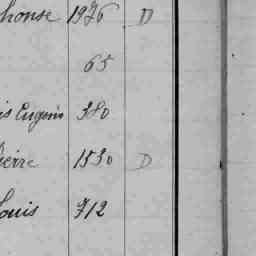 phonse 1976 D
65
is Eugenio 380
ierre 1530 D
Louis 712